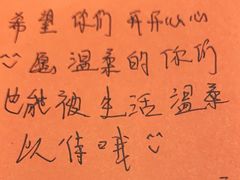 希望你们开开心心
愿温柔的你们
也能被生活温柔
以待哦